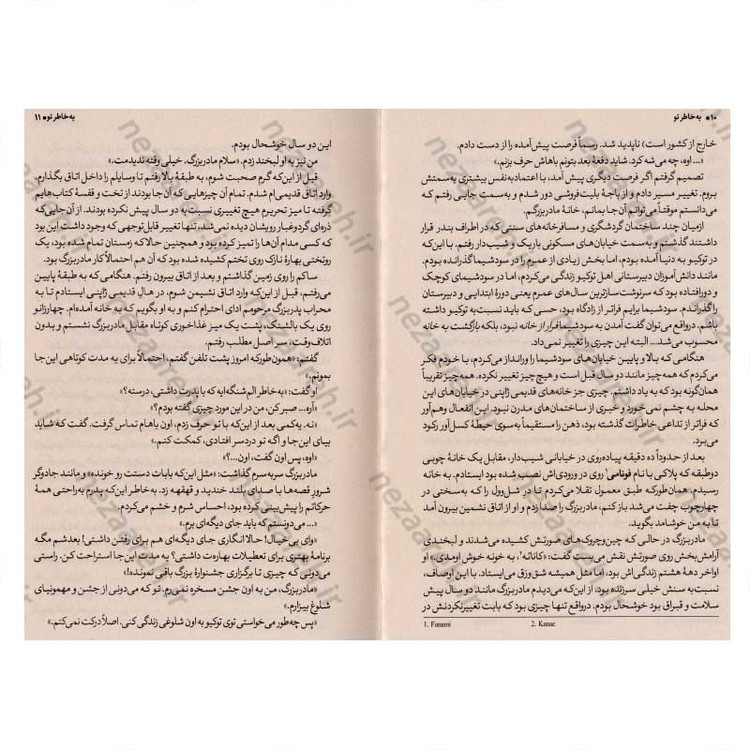 ۱۰ • به‌خاطر تو
خارج از کشور است) ناپدید شد. رسماً فرصت پیش‌آمده را از دست دادم.
«... اوه، چه می‌شه کرد. شاید دفعهٔ بعد بتونم باهاش حرف بزنم.»
تصمیم گرفتم اگر فرصت دیگری پیش آمد، با اعتمادبه‌نفس بیشتری به‌سمتش
بروم. تغییر مسیر دادم و از باجهٔ بلیت‌فروشی دور شدم و به‌سمت جایی رفتم که
می‌دانستم موقتاً می‌توانم آن‌جا بمانم، خانهٔ مادربزرگم.
ازمیان چند ساختمان گردشگری و مسافرخانه‌های سنتی که در اطراف بندر قرار
داشتند گذشتم و به‌سمت خیابان‌های مسکونی باریک و شیب‌دار رفتم. با این‌که
در توکیو به دنیا آمده بودم، اما بخش زیادی از عمرم را در سودشیما گذرانده بودم.
مانند دانش‌آموزان دبیرستانی اهل توکیو زندگی می‌کردم، اما در سودشیمای کوچک
و دورافتاده بود که سرنوشت‌سازترین سال‌های عمرم یعنی دورهٔ ابتدایی و دبیرستان
را گذراندم. سودشیما برایم فراتر از زادگاه بود، حسی که باید نسبت‌به توکیو داشته
باشم. درواقع می‌توان گفت آمدن به سودشیما فرار از خانه نبود، بلکه بازگشت به خانه
محسوب می‌شد... البته این چیزی را تغییر نمی‌داد.
هنگامی که بالا و پایین خیابان‌های سودشیما را ورانداز می‌کردم، با خودم فکر
می‌کردم که همه‌چیز مانند دو سال قبل است و هیچ چیز تغییر نکرده. همه‌چیز تقریباً
همان‌گونه بود که به یاد داشتم. چیزی جز خانه‌های قدیمی ژاپنی در خیابان‌های این
محله به چشم نمی‌خورد و خبری از ساختمان‌های مدرن نبود. این انفعال وهم‌آور
که فراتر از تداعی خاطرات گذشته بود، ذهن را مستقیماً به‌سوی حیطهٔ کسل‌آور رکود
می‌برد.
بعد از حدوداً ده دقیقه پیاده‌روی در خیابانی شیب‌دار، مقابل یک خانهٔ چوبی
دوطبقه که پلاکی با نام فونامی۱ روی در ورودی‌اش نصب شده بود ایستادم. به خانه
رسیدم. همان‌طور که طبق معمول تقلا می‌کردم تا در شل‌وول را که به‌سختی در
چهارچوب جفت می‌شد باز کنم، مادربزرگ را صدا زدم و او از اتاق نشمین بیرون آمد
تا به من خوشامد بگوید.
مادربزرگ در حالی که چین‌وچروک‌های صورتش کشیده می‌شدند و لبخندی
آرامش‌بخش روی صورتش نقش می‌بست گفت: «کانائه۲، به خونه خوش اومدی.» او
اواخر دههٔ هشتم زندگی‌اش بود، اما مثل همیشه شق‌ورق می‌ایستاد. با این اوصاف،
نسبت به سنش خیلی سرزنده بود، از این‌که می‌دیدم مادربزرگ مانند دو سال پیش
سلامت و قبراق بود خوشحال بودم. درواقع تنها چیزی بود که بابت تغییرنکردنش در
1. Funami 2. Kanae
به‌خاطر تو • ۱۱
این دو سال خوشحال بودم.
من نیز به او لبخند زدم. «سلام مادربزرگ. خیلی وقته ندیدمت.»
قبل از این‌که گرم صحبت شوم، به طبقهٔ بالا رفتم و وسایلم را داخل اتاق بگذارم.
وارد اتاق قدیمی‌ام شدم. تمام آن چیزهایی که آن‌جا بودند از تخت و قفسهٔ کتاب‌هایم
گرفته تا میز تحریرم هیچ تغییری نسبت به دو سال پیش نکرده بودند. از آن جایی که
ذره‌ای گردوغبار رویشان دیده نمی‌شد، تنها تغییر قابل‌توجهی که وجود داشت این بود
که کسی مدام آن‌ها را تمیز کرده بود و همچنین حالا که زمستان تمام شده بود، یک
روتختی بهارهٔ نازک روی تختم کشیده شده بود که آن هم احتمالاً کار مادربزرگ بود.
ساکم را روی زمین گذاشتم و بعد از اتاق بیرون رفتم. هنگامی که به طبقهٔ پایین
می‌رفتم، قبل از این‌که وارد اتاق نشیمن شوم، در هال قدیمی ژاپنی ایستادم تا به
محراب پدربزرگ مرحومم ادای احترام کنم و به او بگویم که به خانه آمده‌ام. چهارزانو
روی یک بالشتک، پشت یک میز غذاخوری کوتاه مقابل مادربزرگ نشستم و بدون
اتلاف‌وقت، سر اصل مطلب رفتم.
گفتم: «همون‌طور که امروز پشت تلفن گفتم، احتمالاً برای یه مدت کوتاهی این‌جا
بمونم.»
او گفت: «به‌خاطر الم شنگه‌ایه که با پدرت داشتی، درسته؟»
«آره... صبر کن، من در این مورد چیزی گفته بودم؟»
«نه. یه‌کمی بعد از این‌که با تو حرف زدم، اون باهام تماس گرفت. گفت که شاید
بیای این‌جا و اگه تو دردسر افتادی، کمکت کنم.»
«اوه، پس اون گفت، اون...؟»
مادربزرگ سربه‌سرم گذاشت: «مثل این‌که بابات دستت رو خونده» و مانند جادوگر
شرور قصه‌ها با صدای بلند خندید و قهقهه زد. به‌خاطر این‌که پدرم به‌راحتی همهٔ
حرکاتم را پیش‌بینی کرده بود، احساس شرم و خشم می‌کردم.
«... می‌دونستم که باید جای دیگه‌ای برم.»
«وای بی‌خیال! حالا انگاری جای دیگه‌ای هم برای رفتن داشتی! بعدشم مگه
برنامهٔ بهتری برای تعطیلات بهاره‌ت داشتی؟ یه مدت این‌جا استراحت کن. راستی
می‌دونی که چیزی تا برگزاری جشنوارهٔ بزرگ باقی نمونده!»
«مادربزرگ، من به اون جشن مسخره نمی‌رم. تو که می‌دونی از جشن و مهمونیای
شلوغ بیزارم.»
«پس چه‌طور می‌خواستی توی توکیو به اون شلوغی زندگی کنی. اصلاً درکت نمی‌کنم.»